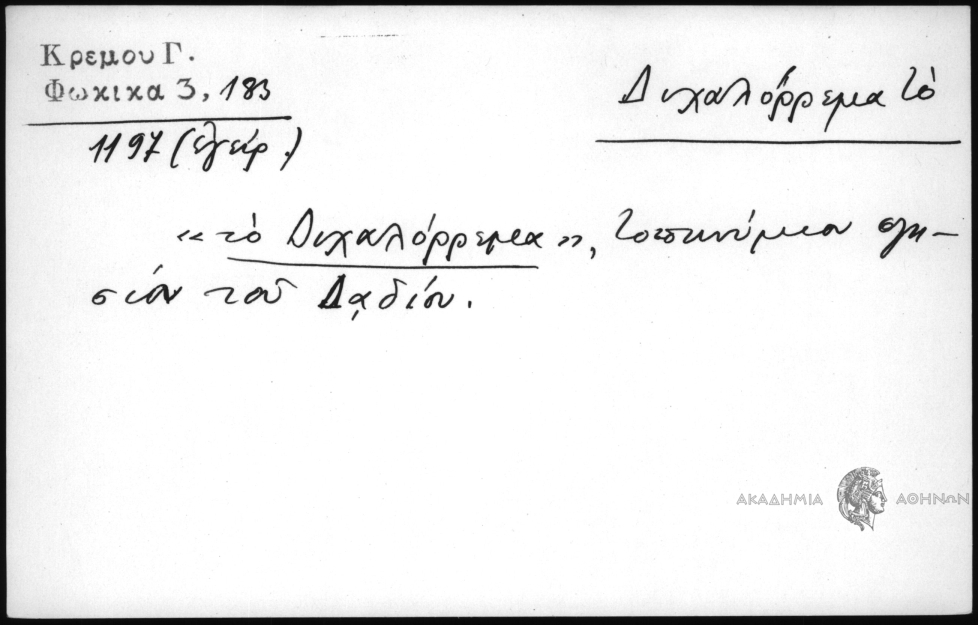 Κρεμου Γ.
Φωκικα 3, 183
1197 (ἔγειρ.)
Διχαλόρρεμα τὸ
«τὸ Διχαλόρρεμα», τοπωνύμιον πλη-
σίον τοῦ Δαδίου.
ΑΚΑΔΗΜΙΑ ΑΘΗΝΩΝ